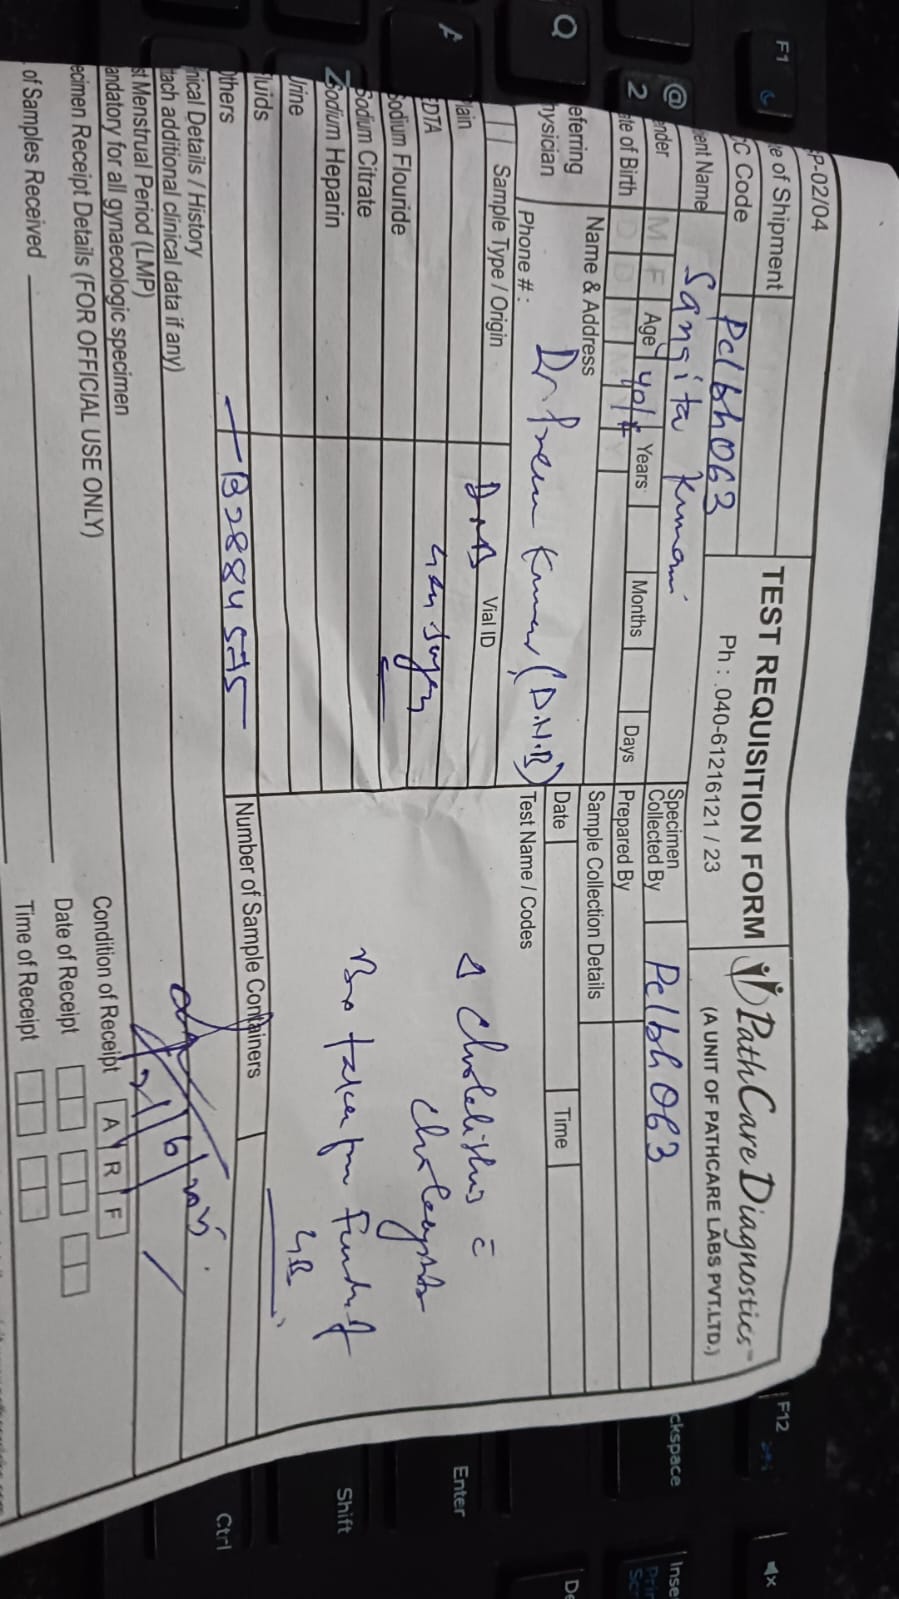 P-02/04
te of Shipment
C Code Pclbh063
TEST REQUISITION FORM
Ph : .040-61216121 / 23
PathCare Diagnostics
(A UNIT OF PATHCARE LABS PVT.LTD.)
ent Name Sangita Kumari
ender M F Age 40/F Years Months Days
te of Birth D D M M Y
Specimen Collected By Pclbh063
Prepared By
Name & Address
Sample Collection Details
eferring
hysician
Dr Prem Kumar (D.N.B)
Date Time
Phone # :
Test Name / Codes
Sample Type / Origin Vial ID
lain
EDTA
odium Flouride
Sodium Citrate
Sodium Heparin
Urine
luids
thers
B2884575
Δ Cholelithis c̄
Bx taken from Fundus of
GB
Number of Sample Containers
nical Details / History
tach additional clinical data if any)
st Menstrual Period (LMP)
andatory for all gynaecologic specimen
ecimen Receipt Details (FOR OFFICIAL USE ONLY)
of Samples Received
Condition of Receipt A R F
Date of Receipt
Time of Receipt
F1
@
2
Q
A
Z
F12
ckspace
Inse
Enter
Shift
Ctrl